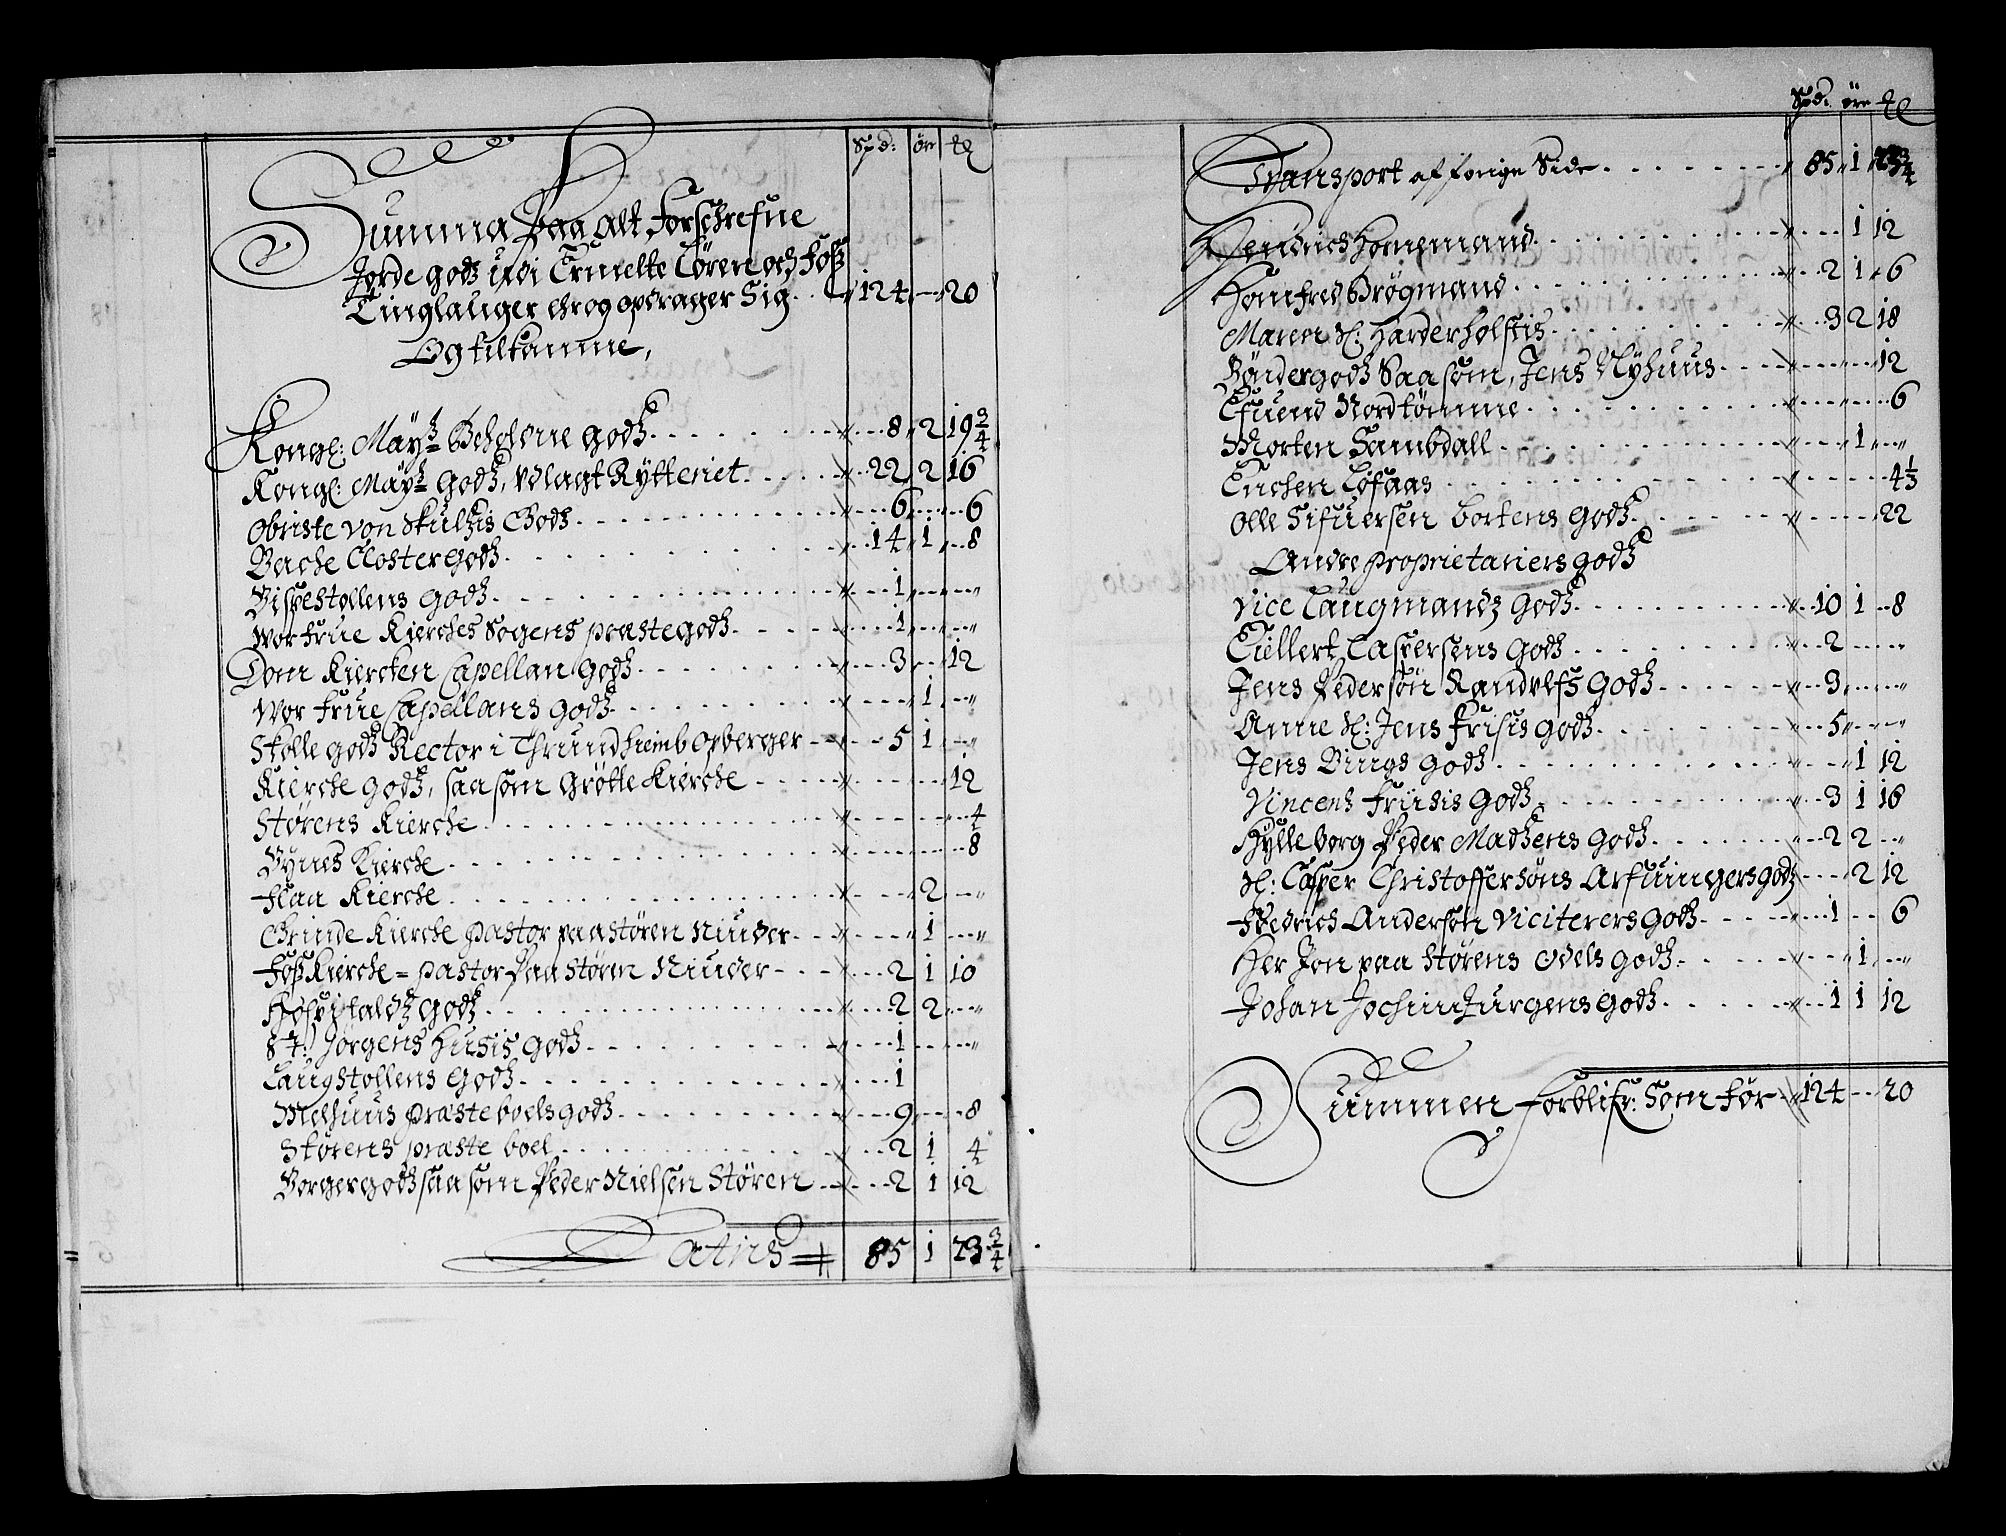 Spd: øre
Summa paa alt Forschrefne
Jorde godz udi Ermelte Løren och Foss
Tinglauger drog opdrager Sig 124 — 20
Og tilkomme,
Kongl: May: Beholdne godz 8 2 19¾
Kongl: May: Godz, Udlagt Rytteriet 22 2 16
Obriste von Skultzis Godz 6 — 6
Backe Closter godz 14 1 8
Bispestollens Godz 1 — „
Wor Frue Kierches Sogens præste godz 1 — „
Dom Kiercken Capellan Godz 3 — 12
Wor Frue Capellans Godz — 1 „
Skolle godz Rector i Thrundhiemb opberger 5 1 „
Kierche Godz, saasom Grøtte Kierche — — 12
Størens Kierche — — 4
Bynes Kierche — — 8
Flaa Kierche — 2 „
Grinde Kierche pastor paa støren Niuder — 1 „
Foss Kierche = pastor paa Støren Niuder 2 1 10
Hospitaldz Godz 2 2 „
St: Jørgens Husis Godz 1 — „
Laugstollens Godz 1
Melhuus præsteboels godz 9 — 8
Størens præste boel 2 1 4
Borger godz saasom Peder Nielsen Støren 2 1 12
Latus 85 1 23¾
Spd: øre
Transport af forige Side 85 1 23¾
Hendrich Hornemand — 1 12
Homfred Brøgmand 2 1 6
Maren Sl: Harderholstis 3 2 18
Bøndergodz Saasom, Jens Nyhuus — — 12
Efuend Nordtømme — — 6
Morten Sambdall — 1 „
Enchen Løfaas — — 4⅓
Olle Sifuersen Bortens Godz — — 22
Andre proprietariers godz
Vice Laugmandz Godz 10 1 8
Eillert Caspersens Godz 2 — „
Jens Pedersøn Randulfs Godz 3 — „
Anne Sl: Jens Frisis Godz 5 — „
Jens Bings Godz — 1 12
Vincens Friisis Godz 3 1 16
Hylleborg Peder Madsens Godz 2 2 „
Sl: Casper Christoffersøns Arfuingers godz — 2 12
Fredrich Andersøn Viciterers Godz 1 — 6
Her Jon paa Størens Odels Godz — 1 „
Johan Jochim Jurgens Godz 1 1 12
Summen Forblifr: Som Før 124 — 20